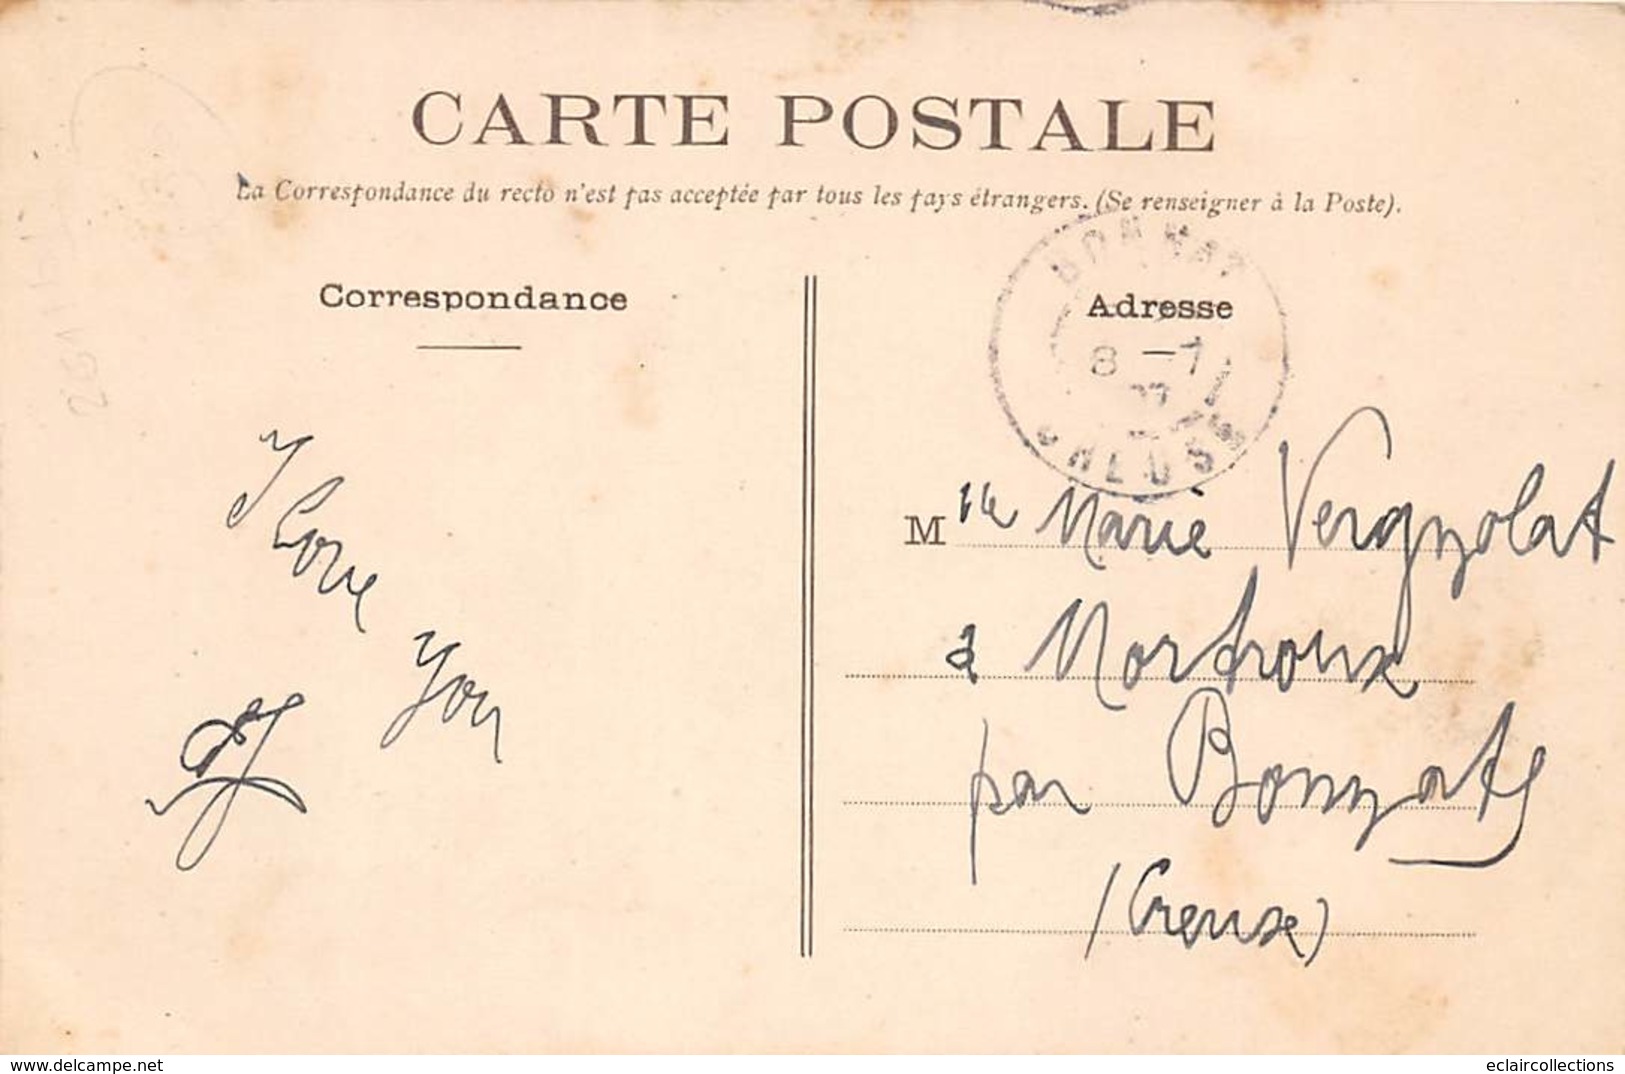 CARTE POSTALE
La Correspondance du recto n'est pas acceptée par tous les pays étrangers. (Se renseigner à la Poste).
Correspondance
I
Love
You
Adresse
BONNAT
8 - 7
07
CREUSE
Mlle Marie Vergnolat
à Mortroux
par Bonnat
(Creuse)
www.delcampe.net
eclaircollections